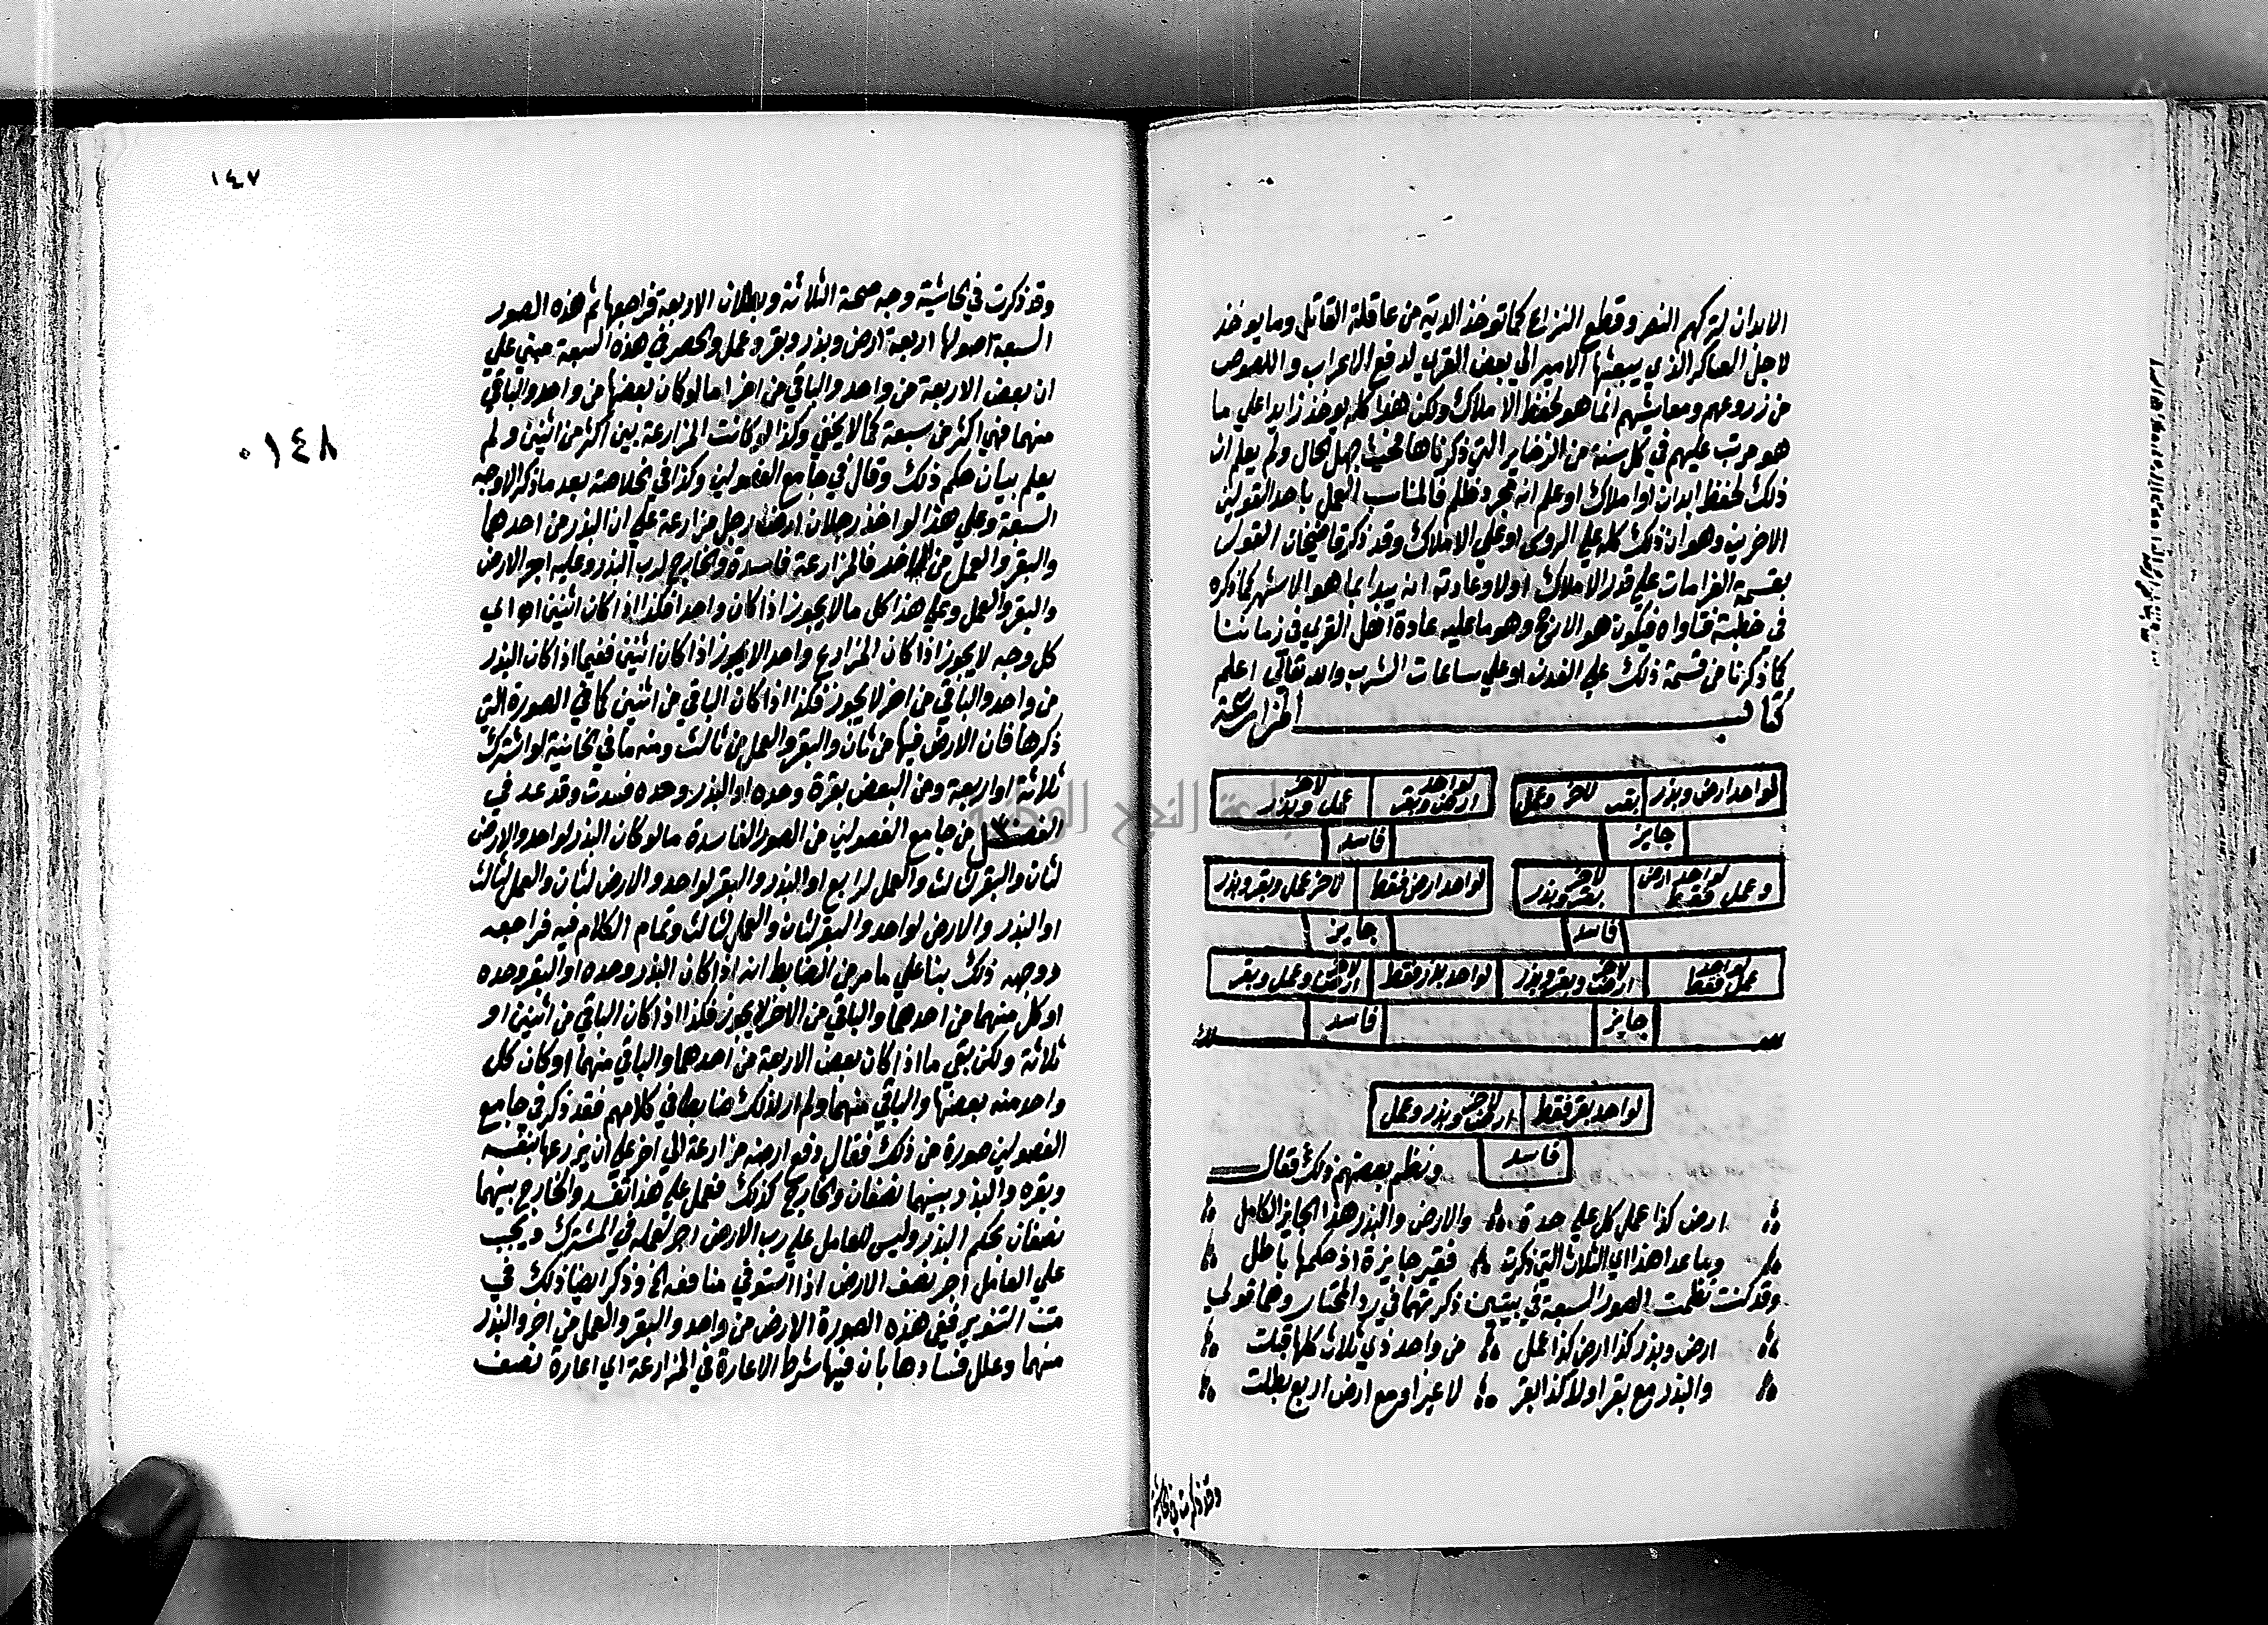 الابدان لتركهم النصر وقطع النزاع كما توخذ الدية من عاقلة القاتل وما يوخذ
لاجل العساكر الذي يبعثها الامير الي بعض القري لدفع الاعراب واللصوص
من زروعهم ومعايشهم انما هو لحفظ الاملاك ولكن هذا كله يوخذ زايدا علي ما
هو مرتب عليهم في كل سنة من الزخاير التي ذكرناها فحيث جهل الحال ولم يعلم ان
ذلك لحفظ ابدان او املاك او علم انه مجرد ظلم فالمناسب العمل باحد القولين
الاخرين وهو ان ذلك كله علي الروس او علي الاملاك وقد ذكر قاضيخان القول
بقسمة الغرامات علي قدر الاملاك اولا وعادته انه يبدا بما هو الاشهر كما ذكره
في خطبة فتاواه فيكون هو الارجح وهو ما عليه عادة اهل القري في زماننا
كما ذكرنا من قسمة ذلك علي الفدن او علي ساعات الشرب والله تعالي اعلم
كتاب المزارعة
لواحد ارض وبذر
لاخر بقر وعمل
جايز
لواحد ارض وبقر
لاخر عمل وبذر
فاسد
لواحد ارض وعمل فقط
لاخر بقر وبذر
فاسد
لواحد ارض فقط
لاخر عمل وبقر وبذر
جايز
لواحد عمل فقط
لاخر ارض وبقر وبذر
جايز
لواحد بذر فقط
لاخر ارض وعمل وبقر
فاسد
لواحد بقر فقط
لاخر ارض وبذر وعمل
فاسد
ونظم بعضهم ذلك فقال
ارض كذا عمل كل علي حدة والارض والبذر هذا الجايز الكامل
وما عدا هذا اي الثلاث التي ذكرت فغير جايزة اذ حكمها باطل
وقد كنت نظمت الصور السبعة في بيتين ذكرتهما في رد المحتار وهما قولي
ارض وبذر كذا ارض كذا عمل من واحد ذي ثلاث كلها قبلت
والبذر مع بقر او لا كذا بقر لا غير او مع ارض اربع بطلت
وقد ذكرت في الحاشية
١٤٧
٠١٤٨
وقد ذكرت في الحاشية وجه صحة الثلاثة وبطلان الاربعة فراجعها ثم هذه الصور
السبعة اصولها اربعة ارض وبذر وبقر وعمل والحصر في هذه السبعة مبني علي
ان بعض الاربعة من واحد والباقي من اخر اما لو كان بعضها من واحد والباقي
منهما فهي اكثر من سبعة كما لا يخفي وكذا لو كانت المزارعة بين اكثر من اثنين ولم
يعلم بيان حكم ذلك وقال في جامع الفصولين وكذا في الخلاصة بعد ما ذكر الاوجه
السبعة وعلي هذا لو اخذ رجلان ارض رجل مزارعة علي ان البذر من احدهما
والبقر والعمل من الاخر فالمزارعة فاسدة والخارج لرب البذر وعليه اجر الارض
والبقر والعمل وعلي هذا كل ما لا يجوز اذا كان واحدا فكذا اذا كان اثنين اه اي
كل وجه لا يجوز اذا كان المزارع واحدا لا يجوز اذا كان اثنين ففيما اذا كان البذر
من واحد والباقي من اخر لا يجوز فكذا اذا كان الباقي من اثنين كما في الصورة التي
ذكرها فان الارض فيها من ثان والبقر والعمل من ثالث ومنه ما في الخانية لو اشترك
ثلاثة او اربعة ومن البعض بقرة وحده او البذر وحده فسدت وقد عد في
الفصل من جامع الفصولين من الصور الفاسدة ما لو كان البذر لواحد والارض
لثان والبقر لثالث والعمل لرابع او البذر والبقر لواحد والارض لثان والعمل لثالث
او البذر والارض لواحد والبقر لثان والعمل لثالث وتمام الكلام فيه فراجعه
ووجهه ذلك بنا علي ما مر من الضابط انه اذا كان البذر وحده او البقر وحده
او كل منهما من احدهما والباقي من الاخر لا يجوز فكذا اذا كان الباقي من اثنين او
ثلاثة ولكن بقي ما اذا كان بعض الاربعة من احدهما والباقي منهما او كان كل
واحد منه بعضها والباقي منهما ولم ار لذلك ضابطا في كلامهم فقد ذكر في جامع
الفصولين صورة من ذلك فقال دفع ارضه مزارعة الي اخر علي ان يزرعها بنفسه
وبقره والبذر بينهما نصفان والخارج كذلك فعمل علي هذا تفسد والخارج بينهما
نصفان بحكم البذر وليس للعامل علي رب الارض اجر لعمله في المشترك ويجب
علي العامل اجر نصف الارض اذا استوفي منافعه الخ وذكر ايضا ذلك في
متن التنوير ففي هذه الصورة الارض من واحد والبقر والعمل من اخر والبذر
منهما وعلل فسادها بان فيها شرط الاعارة في المزارعة اي اعارة نصف